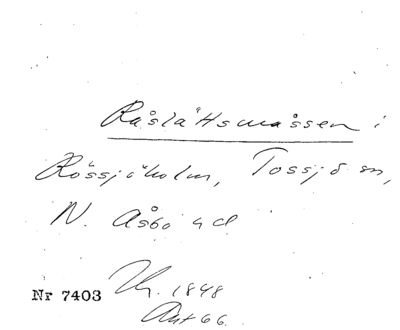 Råslättsmåssen i
Rössjöholm, Tossjö sn,
N. Åsbo hd
Nr 7403 Th. 1848
Ant 66.